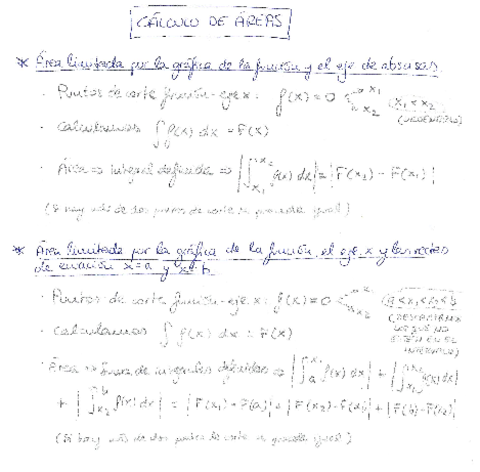 CÁLCULO DE ÁREAS
* Área limitada por la gráfica de la función y el eje de abscisas
· Puntos de corte función-eje x: f(x)=0 x₁ x₂ x₁<x₂
(ORDENADOS)
· Calculamos ∫ f(x) dx = F(x)
· Área ⇒ integral definida ⇒ |∫_{x₁}^{x₂} f(x) dx| = |F(x₂) - F(x₁)|
(Si hay más de dos puntos de corte se procede igual)
* Área limitada por la gráfica de la función, el eje x y las rectas
de ecuación x=a y x=b
· Puntos de corte función-eje x: f(x)=0 x₁ x₂ a<x₁<x₂<b
(DESCARTAMOS
LOS QUE NO
ESTÉN EN EL
INTERVALO)
· Calculamos ∫ f(x) dx = F(x)
· Área ⇒ Suma de integrales definidas ⇒ |∫_a^{x₁} f(x) dx| + |∫_{x₁}^{x₂} f(x) dx|
+ |∫_{x₂}^b f(x) dx| = |F(x₁) - F(a)| + |F(x₂) - F(x₁)| + |F(b) - F(x₂)|
(Si hay más de dos puntos de corte se procede igual)